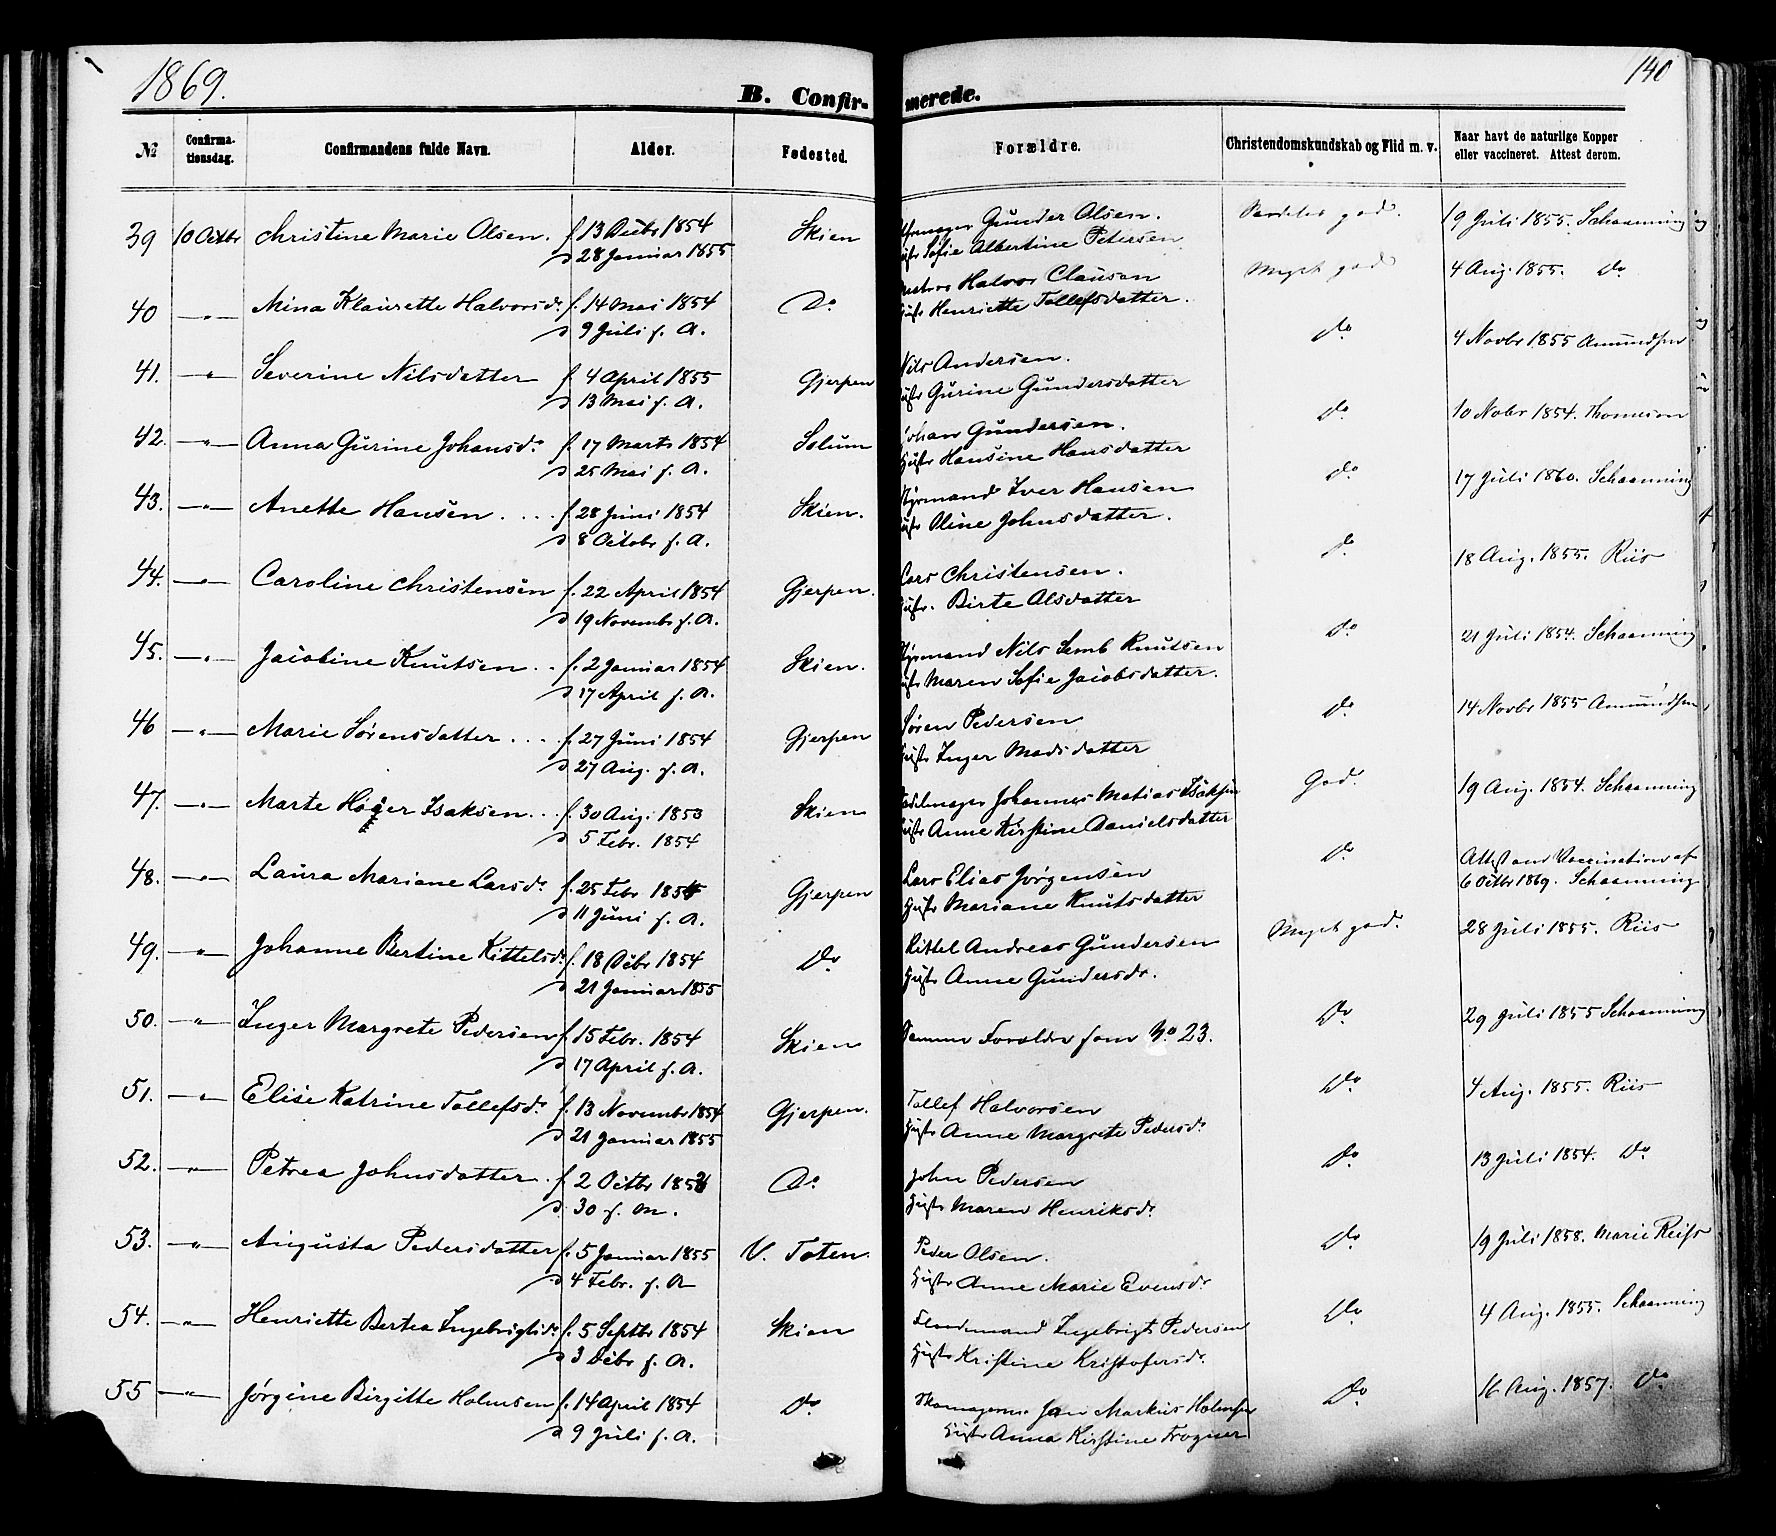 1869.
140
B. Confirmerede.
№ Confirmationsdag. Confirmandens fulde Navn. Alder. Fødested. Forældre. Christendomskundskab og Flid m. v. Naar havt de naturlige Kopper eller vaccineret. Attest derom.
39 10 Octbr Christine Marie Olsen. f. 13 Decbr 1854 Skien Gunder Olsen. god. 19 Juli 1855. Schaanning
d 28 Januar 1855 Sofie Albertine Petersen
40 —„— Mina Klaurette Halvorsdr f. 14 Mai 1854 Do Halvor Clausen Meget god 4 Aug. 1855. Do
d 9 Juli s. A. Henriette Tollefsdatter.
41. —„— Severine Nilsdatter f. 4 April 1855 Gjerpen Nils Andersen. Do 4 Novbr 1855 Amundsen
d 13 Mai s. A. Hustr Gurine Gundersdatter
42. —„— Anna Gurine Johansdr f. 17 Marts 1854 Solum Johan Gundersen. Do 10 Nobr 1854. Thomeson
d 25 Mai s. A. Hustr Hansine Hansdatter
43. —„— Anette Hansen. . . . f. 28 Juni 1854 Skien. Styrmand Iver Hansen Do 17 Juli 1860. Schaanning
d 8 Octobr s. A. Hustr Oline Johnsdatter.
44. —„— Caroline Christensen f. 22 April 1854 Gjerpen. Lars Christensen. Do 18 Aug. 1855. Riis
d 19 Novembr s. A. Hustr. Birte Olsdatter
45. —„— Jacobine Knutsen . . f. 2 Januar 1854 Skien. Styrmand Nils Semb Knutsen Do 21 Juli 1854. Schaanning
d 17 April s. A. Hustr Maren Sofie Jacobsdatter.
46 —„— Marie Sørensdatter . . . f. 27 Juni 1854 Gjerpen Søren Pedersen Do 14 Novbr 1855 Amundsen
d 27 Aug. s. A. Hustr Inger Madsdatter
47. —„— Marte Høier Isaksen . . f. 30 Aug. 1853 Skien Johannes Matias Isaksen God. 19 Aug. 1854. Schaanning
d 5 Febr. 1854 Hustr Anne Kirstine Danielsdatter
48. —„— Laura Mariane Larsdr f. 25 Febr 1854 Gjerpen Lars Elias Jørgensen Do Attest om Vaccination af
d 11 Juni s. A. Hustr Mariane Knutsdatter 6 Octbr 1869. Schaanning
49. —„— Johanne Bertine Kittelsdr f. 18 Octbr 1854 Do Kittel Andreas Gundersen Meget god. 28 Juli 1855. Riis
d 21 Januar 1855 Hustr Anne Gundersdr.
50. —„— Inger Margrete Pedersen f. 15 Febr. 1854 Skien Samme Forældre som No 23. Do 29 Juli 1855 Schaanning
d 17 April s. A.
51. —„— Elise Katrine Tollefsdr f. 13 Novembr 1854 Gjerpen. Tollef Halvorsen Do 4 Aug. 1855. Riis
d 21 Januar 1855 Hustr Anne Margrete Pedersdr
52. —„— Petrea Johnsdatter . f. 2 Octbr Do John Pedersen Do 13 Juli 1854. Do
d. 30 s. M. Hustr Maren Henriksdr
53. —„— Augusta Pedersdatter f. 5 Januar 1855 V. Toten. Peder Olsen. Do 19 Juli 1858. Marie Reiss
d 4 Febr. s. A Hustr Anne Marie Evensdr
54. —„— Henriette Bertea Ingebrigtsdr f. 5 Septbr 1854 Skien Ingebrigt Pedersen Do 4 Aug. 1855. Schaanning
d 3 Decbr s. A. Hustr Kristine Kristofersdr.
55 —„— Jørgine Birgitte Holmsen f. 14 April 1854 Do Skomagerm. Jan Markus Holmsen Do 16 Aug. 1857. Do
d 9 Juli s. A. Hustr Anna Kirstine Trogner